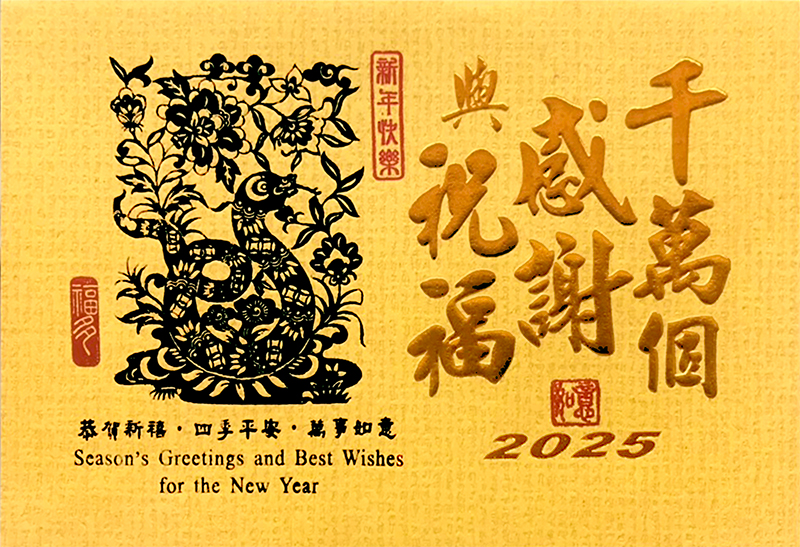 千萬個
感謝
與祝福
如意
2025
新年快樂
福多
恭賀新禧・四季平安・萬事如意
Season's Greetings and Best Wishes
for the New Year